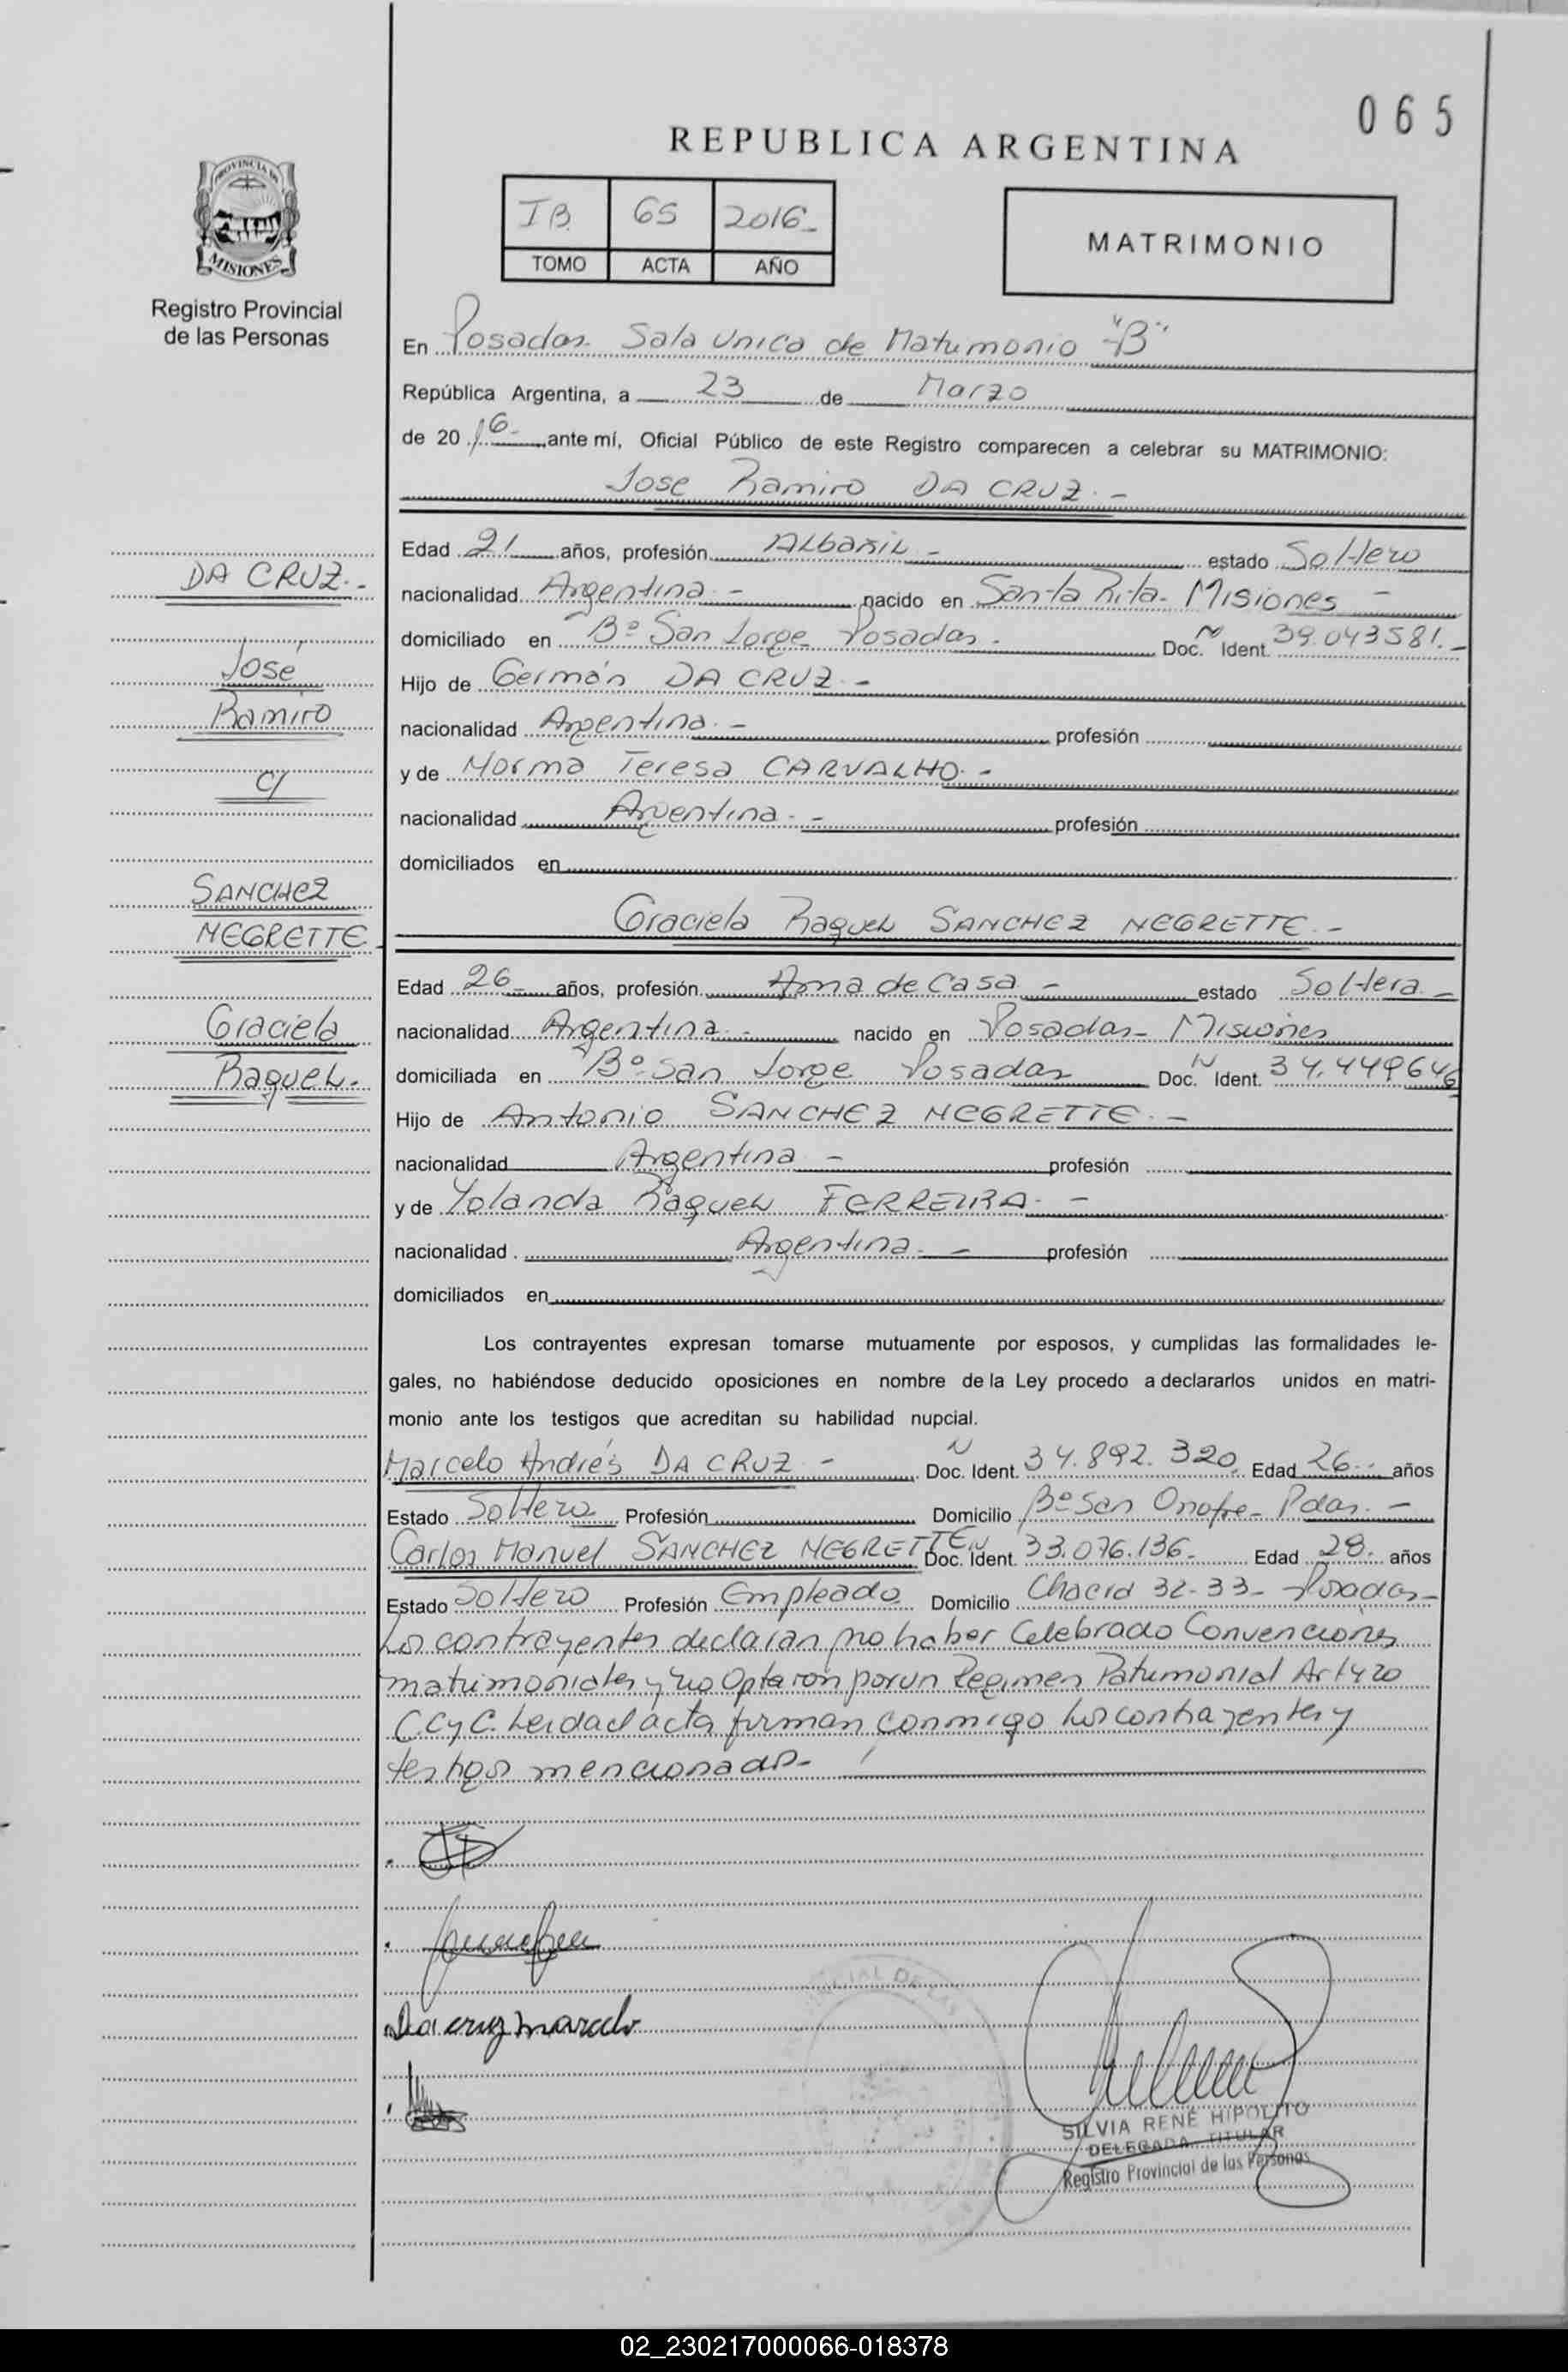 065
REPUBLICA ARGENTINA
PROVINCIA DE
MISIONES
Registro Provincial
de las Personas
IB 65 2016-
TOMO ACTA AÑO
MATRIMONIO
En Posadas Sala Unica de Matrimonio "B"
República Argentina, a 23 de Marzo
de 2016- ante mí, Oficial Público de este Registro comparecen a celebrar su MATRIMONIO:
Jose Ramiro DA CRUZ.-
DA CRUZ.-
José
Ramiro
c/
SANCHEZ
NEGRETTE
Graciela
Raquel.
Edad 21 años, profesión ALbañiL - estado Soltero
nacionalidad Argentina.- nacido en Santa Rita- Misiones -
domiciliado en Bº San Jorge Posadas. Doc. N Ident. 39.043581.-
Hijo de Germán DA CRUZ.-
nacionalidad Argentina.- profesión
y de Norma Teresa CARVALHO.-
nacionalidad Argentina.- profesión
domiciliados en
Graciela Raquel SANCHEZ NEGRETTE.-
Edad 26- años, profesión Ama de Casa - estado Soltera-
nacionalidad Argentina.- nacido en Posadas- Misiones
domiciliada en Bº San Jorge Posadas Doc. N Ident. 34.449646
Hijo de Antonio SANCHEZ NEGRETTE.-
nacionalidad Argentina - profesión
y de Yolanda Raquel FERREIRA.-
nacionalidad Argentina.- profesión
domiciliados en
Los contrayentes expresan tomarse mutuamente por esposos, y cumplidas las formalidades le-
gales, no habiéndose deducido oposiciones en nombre de la Ley procedo a declararlos unidos en matri-
monio ante los testigos que acreditan su habilidad nupcial.
Marcelo Andrés DA CRUZ - Doc. N Ident. 34.892.320 Edad 26- años
Estado Soltero Profesión Domicilio Bº San Onofre- Pdas.-
Carlos Manuel SANCHEZ NEGRETTE Doc. N Ident. 33.076.136- Edad 28. años
Estado Soltero Profesión Empleado Domicilio Chacra 32-33- Posadas-
Los contrayentes declaran no haber Celebrado Convenciones
matrimoniales y no Optaron por un Regimen Patrimonial Art 420
C.C y C. Leida el acta firman conmigo los contrayentes y
testigos mencionados-
Da cruz marcelo
SILVIA RENÉ HIPOLITO
DELEGADA TITULAR
Registro Provincial de las Personas
02_230217000066-018378